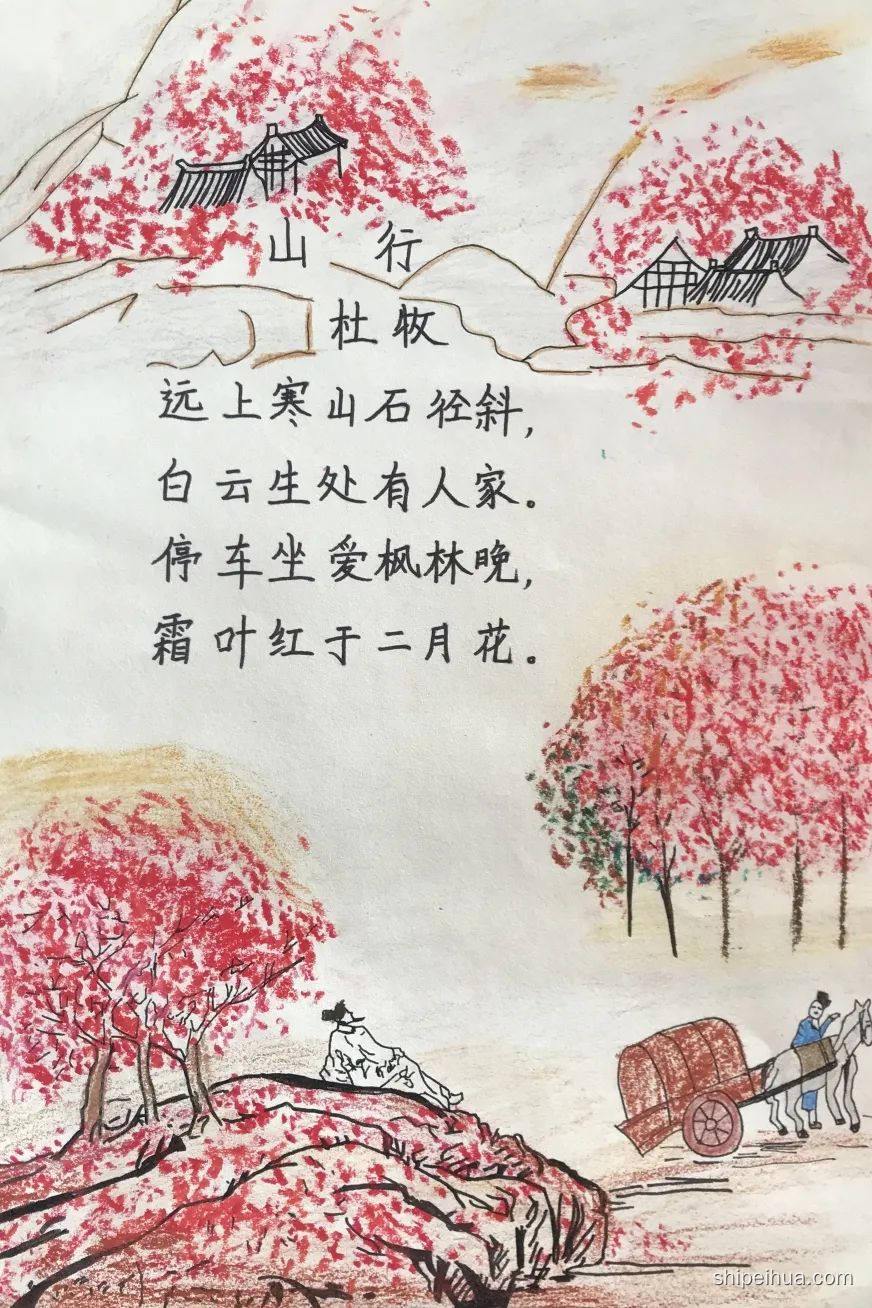 山 行
杜牧
远上寒山石径斜,
白云生处有人家。
停车坐爱枫林晚,
霜叶红于二月花。
shipeihua.com